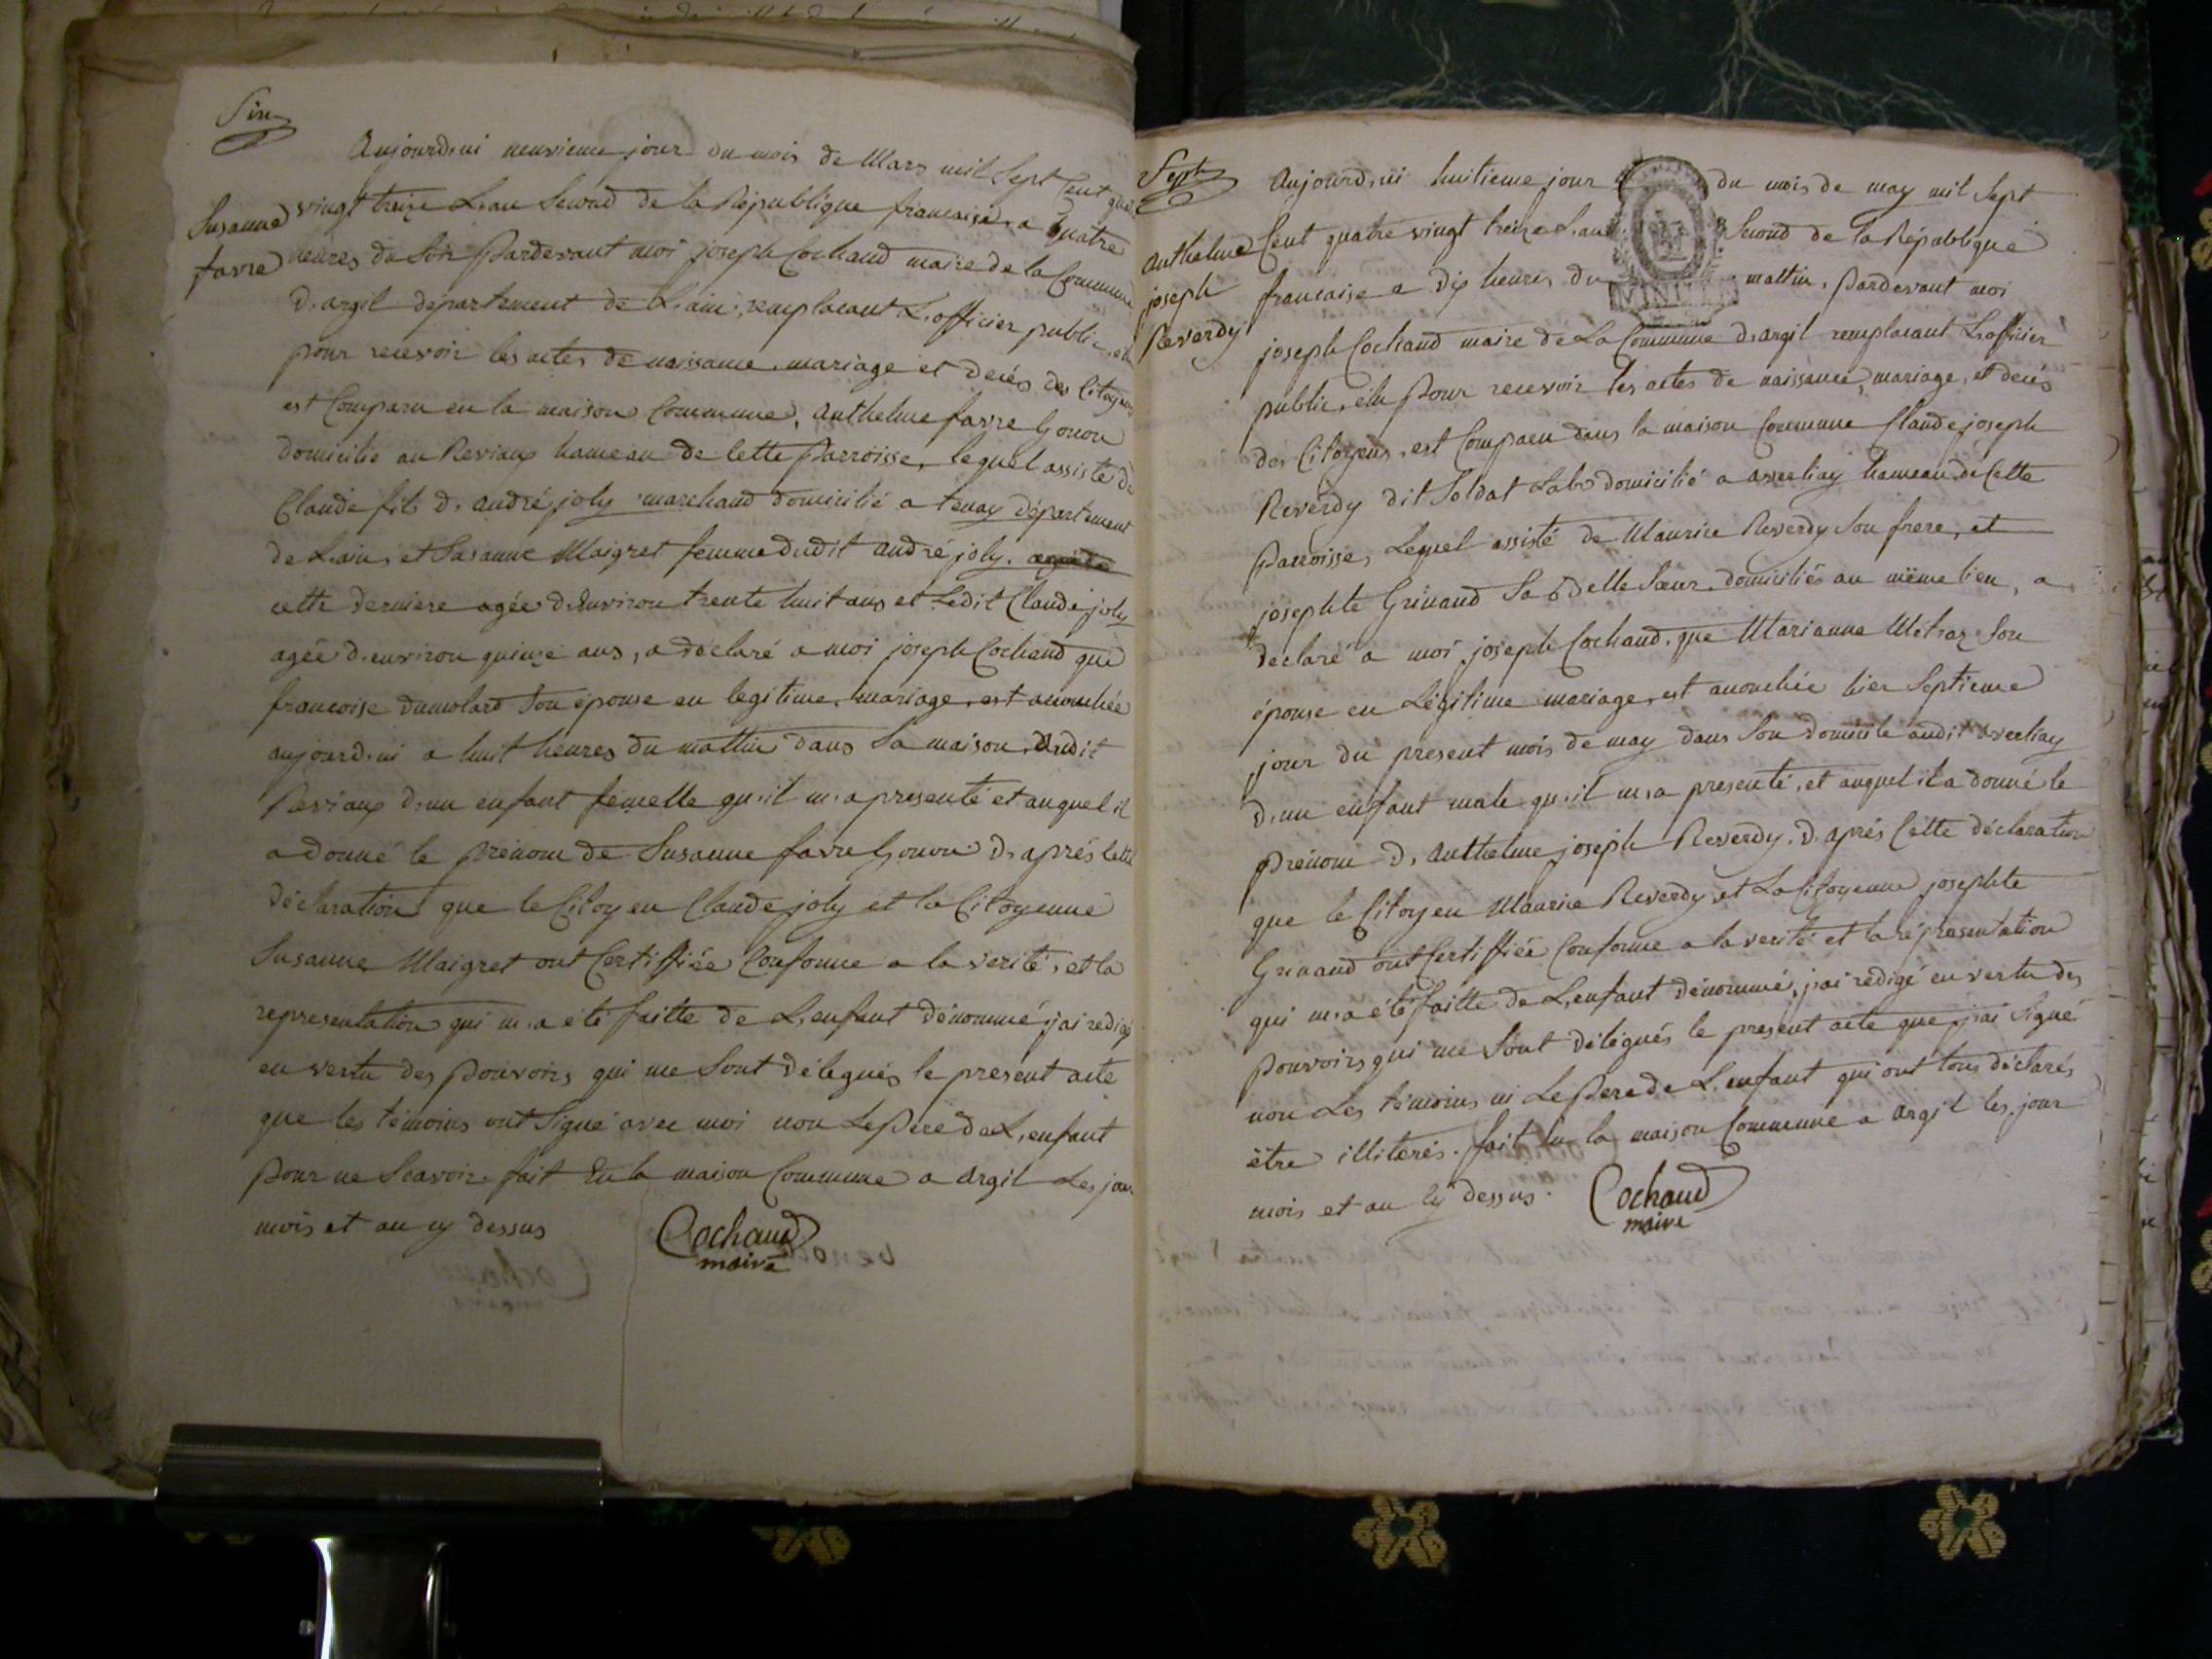 Six
Aujourd,ui neuvieme jour du mois de Mars mil Sept Cent quatre
Susanne
favre
vingt treize L,an Second de la République francaise, a quatre
heures du Soir Pardevant moi joseph Cochaud maire de la Commune
D,argil département de L,ain, remplacant L,officier public, élu
pour recevoir les actes de naissance, mariage et decés des Citoyens
est Comparu en la maison Commune, Anthelme favre Gonon
domicilié au Reviaux hameau de Cette Parroisse, lequel assisté de
Claude fils d, andré joly marchand domicilié a tenay département
de L,ain, et Susanne Maigret femme dudit andré joly.
cette derniere agée d,Environ trente huit ans et Ledit Claude joly
agée d,environ quinze ans, a déclaré a moi joseph Cochaud que
francoise dumolard Son épouse en legitime mariage, est acouchée
aujourd,ui a huit heures du mattin dans Sa maison, audit
Reviaux d,un enfant femelle qu,il m,a presenté et auquel il
a donné le prénom de Susanne favre Gonon D,aprés Cette
déclaration que le Citoyen Claude joly et la Citoyenne
Susanne Maigret ont Certiffiée Conforme a la verité, et la
representation qui m,a été faitte de L,enfant dénommé j'ai redigé
en vertu des Pouvoirs qui me Sont délegués le present acte
que les témoins ont Signé avec moi non Le Pere de L,enfant
Pour ne Scavoir. fait En la maison Commune a Argil Les jour
mois et an cy dessus
Cochaud
maire
Sept
Anthelme
joseph
Reverdy
Aujourd,ui huitieme jour du mois de may mil Sept
Cent quatre vingt treize L,an Second de la République
francaise a dix heures du mattin, Pardevant moi
joseph Cochaud maire de La Commune d,argil remplacant L,officier
public, élu Pour recevoir les actes de naissance, mariage, et decés
des Citoyens, est Comparu dans la maison Commune Claude joseph
Reverdy dit Soldat Lab domicilié a averliay hameau de Cette
Parroisse, Lequel assisté de Maurice Reverdy Son frere, et
josephte Grinand Sa Belle Sœur domiciliés au même lieu, a
déclaré a moi joseph Cochaud, que Marianne Metraz Son
épouse en Légitime mariage, est acouchée hier Septieme
jour du present mois de may dans Son domicile audit averliay
d,un enfant male qu,il m,a presenté, et auquel il a donné le
Prénom d, Anthelme joseph Reverdy. D,aprés Cette déclaration
que le Citoyen Maurice Reverdy, et La Citoyenne josephte
Grinand ont Certiffiée Conforme a la verité et la répresentation
qui m,a été faitte de L,enfant dénommé, j'ai rédigé en vertu des
Pouvoirs qui me Sont délégués le present acte que j'ai Signé
non Les témoins ni Le Pere de L,enfant qui ont tous déclarés
être illiterés. fait En la maison Commune a Argil les jour
mois et an cy dessus.
Cochaud
maire